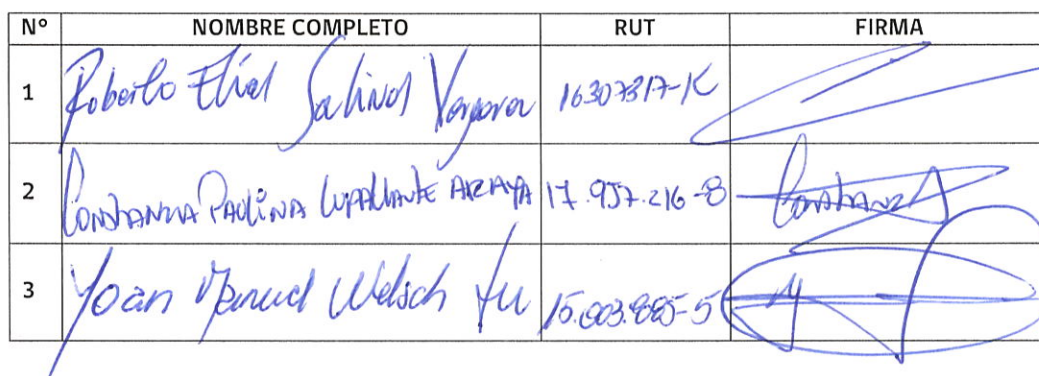 Nº NOMBRE COMPLETO RUT FIRMA
1 Roberto Elías Salinas Vergara 16307317-K
2 CONSTANZA PAULINA ARAYA 17.957.216-8 Constanza
3 Yoan Manuel Welsch 15.003.885-5